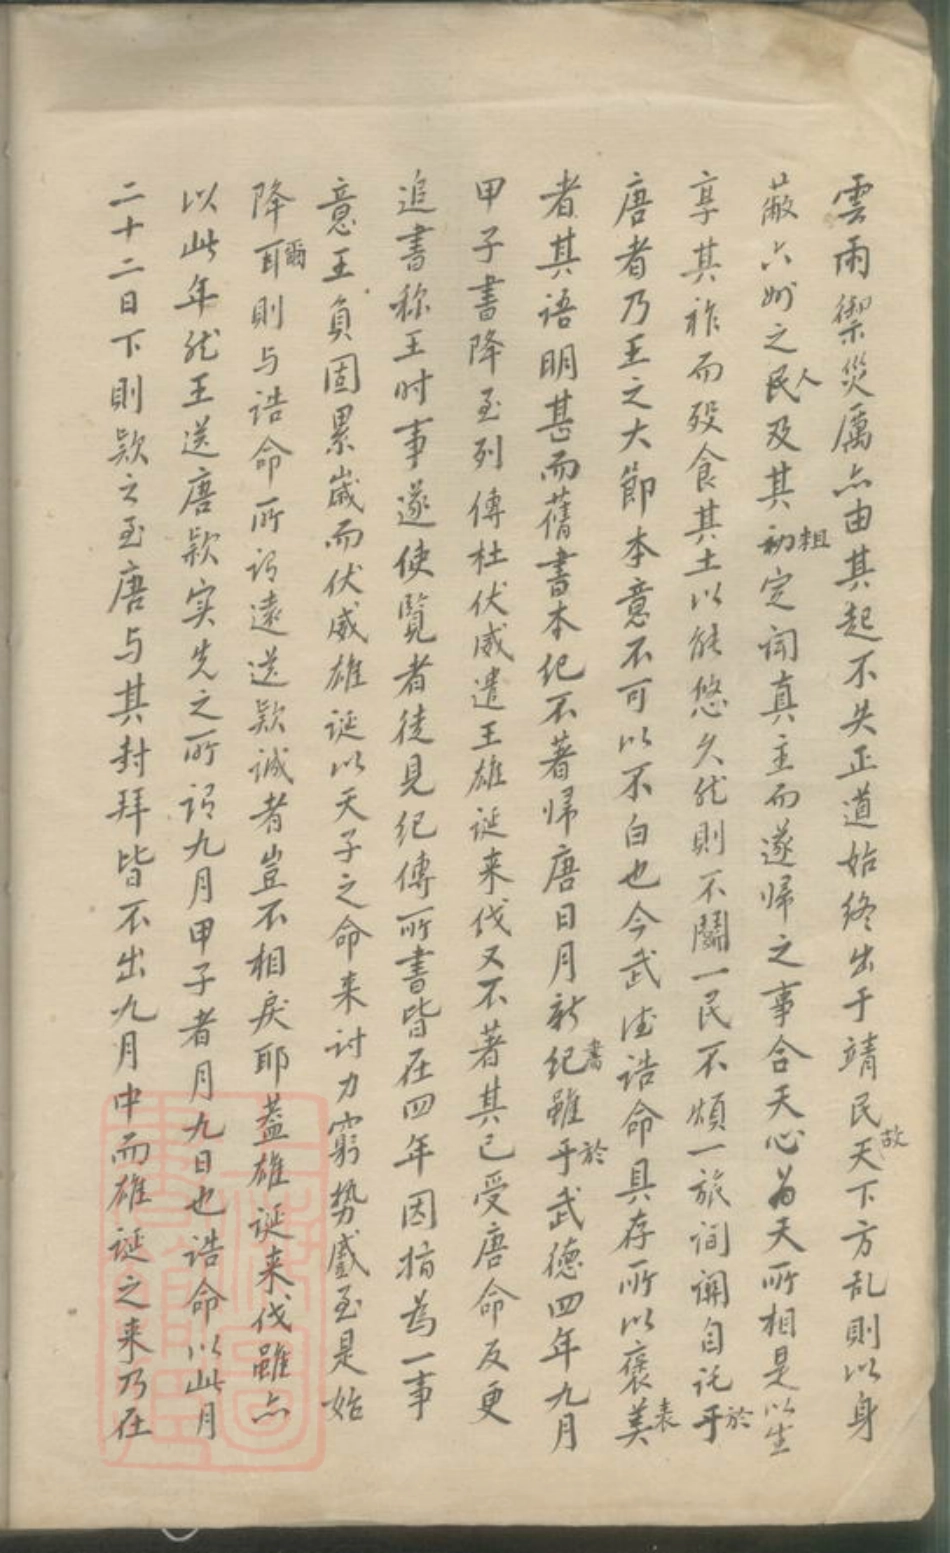 雲雨禦災厲亦由其起不失正道始終出于靖民天故下方乱則以身
蔽六州之民人及其初粗定聞真主而遂帰之事合天心為天所相是以生
享其祚而殁食其土以能悠久然則不鬭一民不煩一旅間関自託于於
唐者乃王之大節本意不可以不白也今武德誥命具存所以褒美表
者其语明甚而舊書本纪不著帰唐日月新纪書雖于於武德四年九月
甲子書降至列傳杜伏威遣王雄诞来伐又不著其已受唐命反更
追書称王时事遂使覽者徒見纪傳所書皆在四年因指為一事
意王負固累嵗而伏威雄诞以天子之命来讨力窮势蹙至是始
降耳爾則与诰命所谓遠送款诚者豈不相戾耶蓋雄诞来伐雖亦
以此年然王送唐款实先之所谓九月甲子者月九日也诰命以此月
二十二日下則款之至唐与其封拜皆不出九月中而雄诞之来乃在